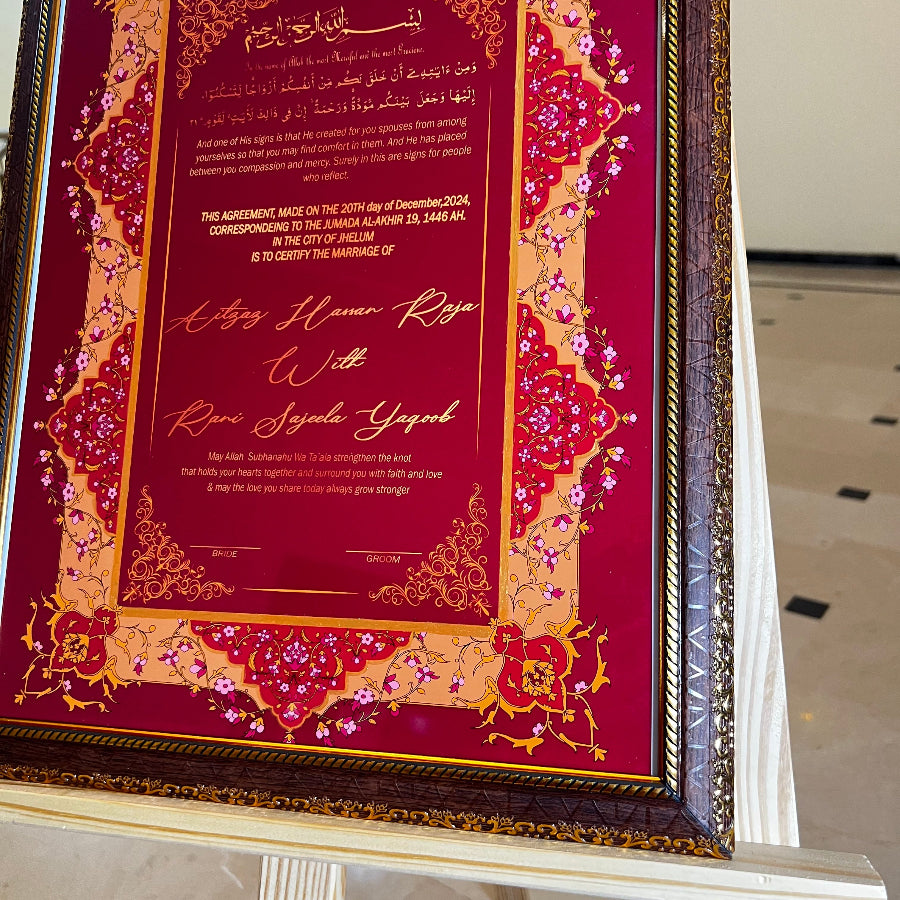 بِسْمِ اللهِ الرَّحْمٰنِ الرَّحِيْمِ
In the name of Allah the most Merciful and the most Gracious.
وَمِنْ ءَايَـٰتِهِۦٓ أَنْ خَلَقَ لَكُم مِّنْ أَنفُسِكُمْ أَزْوَٰجًا لِّتَسْكُنُوٓا۟
إِلَيْهَا وَجَعَلَ بَيْنَكُم مَّوَدَّةً وَرَحْمَةً ۚ إِنَّ فِى ذَٰلِكَ لَـَٔايَـٰتٍ لِّقَوْمٍ ٢١
And one of His signs is that He created for you spouses from among
yourselves so that you may find comfort in them. And He has placed
between you compassion and mercy. Surely in this are signs for people
who reflect.
THIS AGREEMENT, MADE ON THE 20TH day of December,2024,
CORRESPONDEING TO THE JUMADA AL-AKHIR 19, 1446 AH.
IN THE CITY OF JHELUM
IS TO CERTIFY THE MARRIAGE OF
Aitzaz Hassan Raja
With
Rani Sajeela Yaqoob
May Allah Subhanahu Wa Ta'ala strengthen the knot
that holds your hearts together and surround you with faith and love
& may the love you share today always grow stronger
BRIDE
GROOM